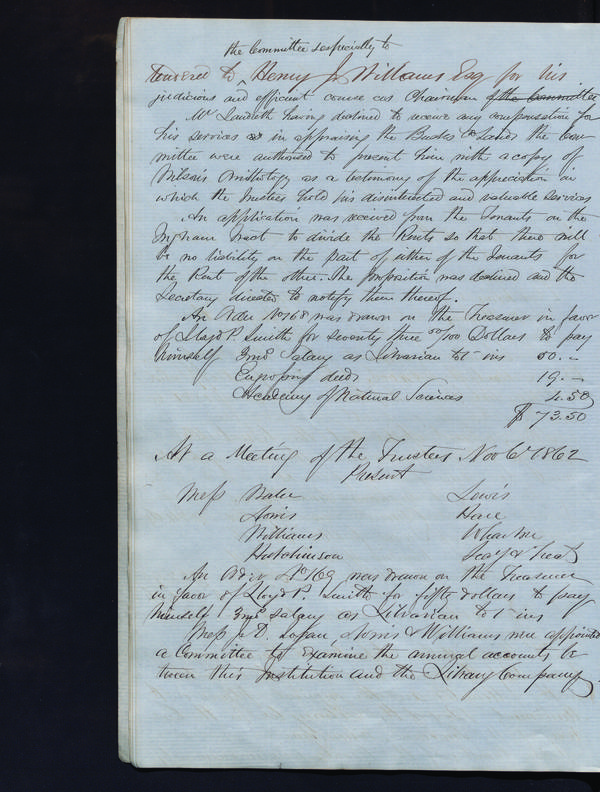 the Committee & especially to
tendered to ^ Henry J. Williams Esq for his
judicious and efficient course as Chairman of the Committee
Mr Landreth having declined to receive any compensation for
his services in appraising the Lands the Com
mittee were authorised to present him with a copy of
Wilson's Ornithology as a testimony of the appreciation in
which the Trustees held his disinterested and valuable services
An application was received from the Tenants on the
Ingham Tract to divide the Rents so that there will
be no liability on the part of either of the Tenants for
the Rent of the other. The proposition was declined and the
Secretary directed to notify them thereof.
An Order No 168 was drawn on the Treasurer in favor
of Lloyd P. Smith for seventy three 50/100 Dollars to pay
himself 3mos Salary as Librarian to 1st ins 50. —
Engrossing deeds 19. —
Academy of Natural Sciences 4.50
$ 73.50
At a Meeting of the Trustees Nov 6th 1862
Present
Mess Lewis
Hare
Williams
Hutchinson Secy & Treas
An Order No 169 was drawn on the Treasurer
in favor of Lloyd P. Smith for fifty dollars to pay
himself 3mos salary as Librarian to 1st ins
Mess Logan, & Williams were appointed
a Committee to examine the annual accounts be
tween this Institution and the Library Company.